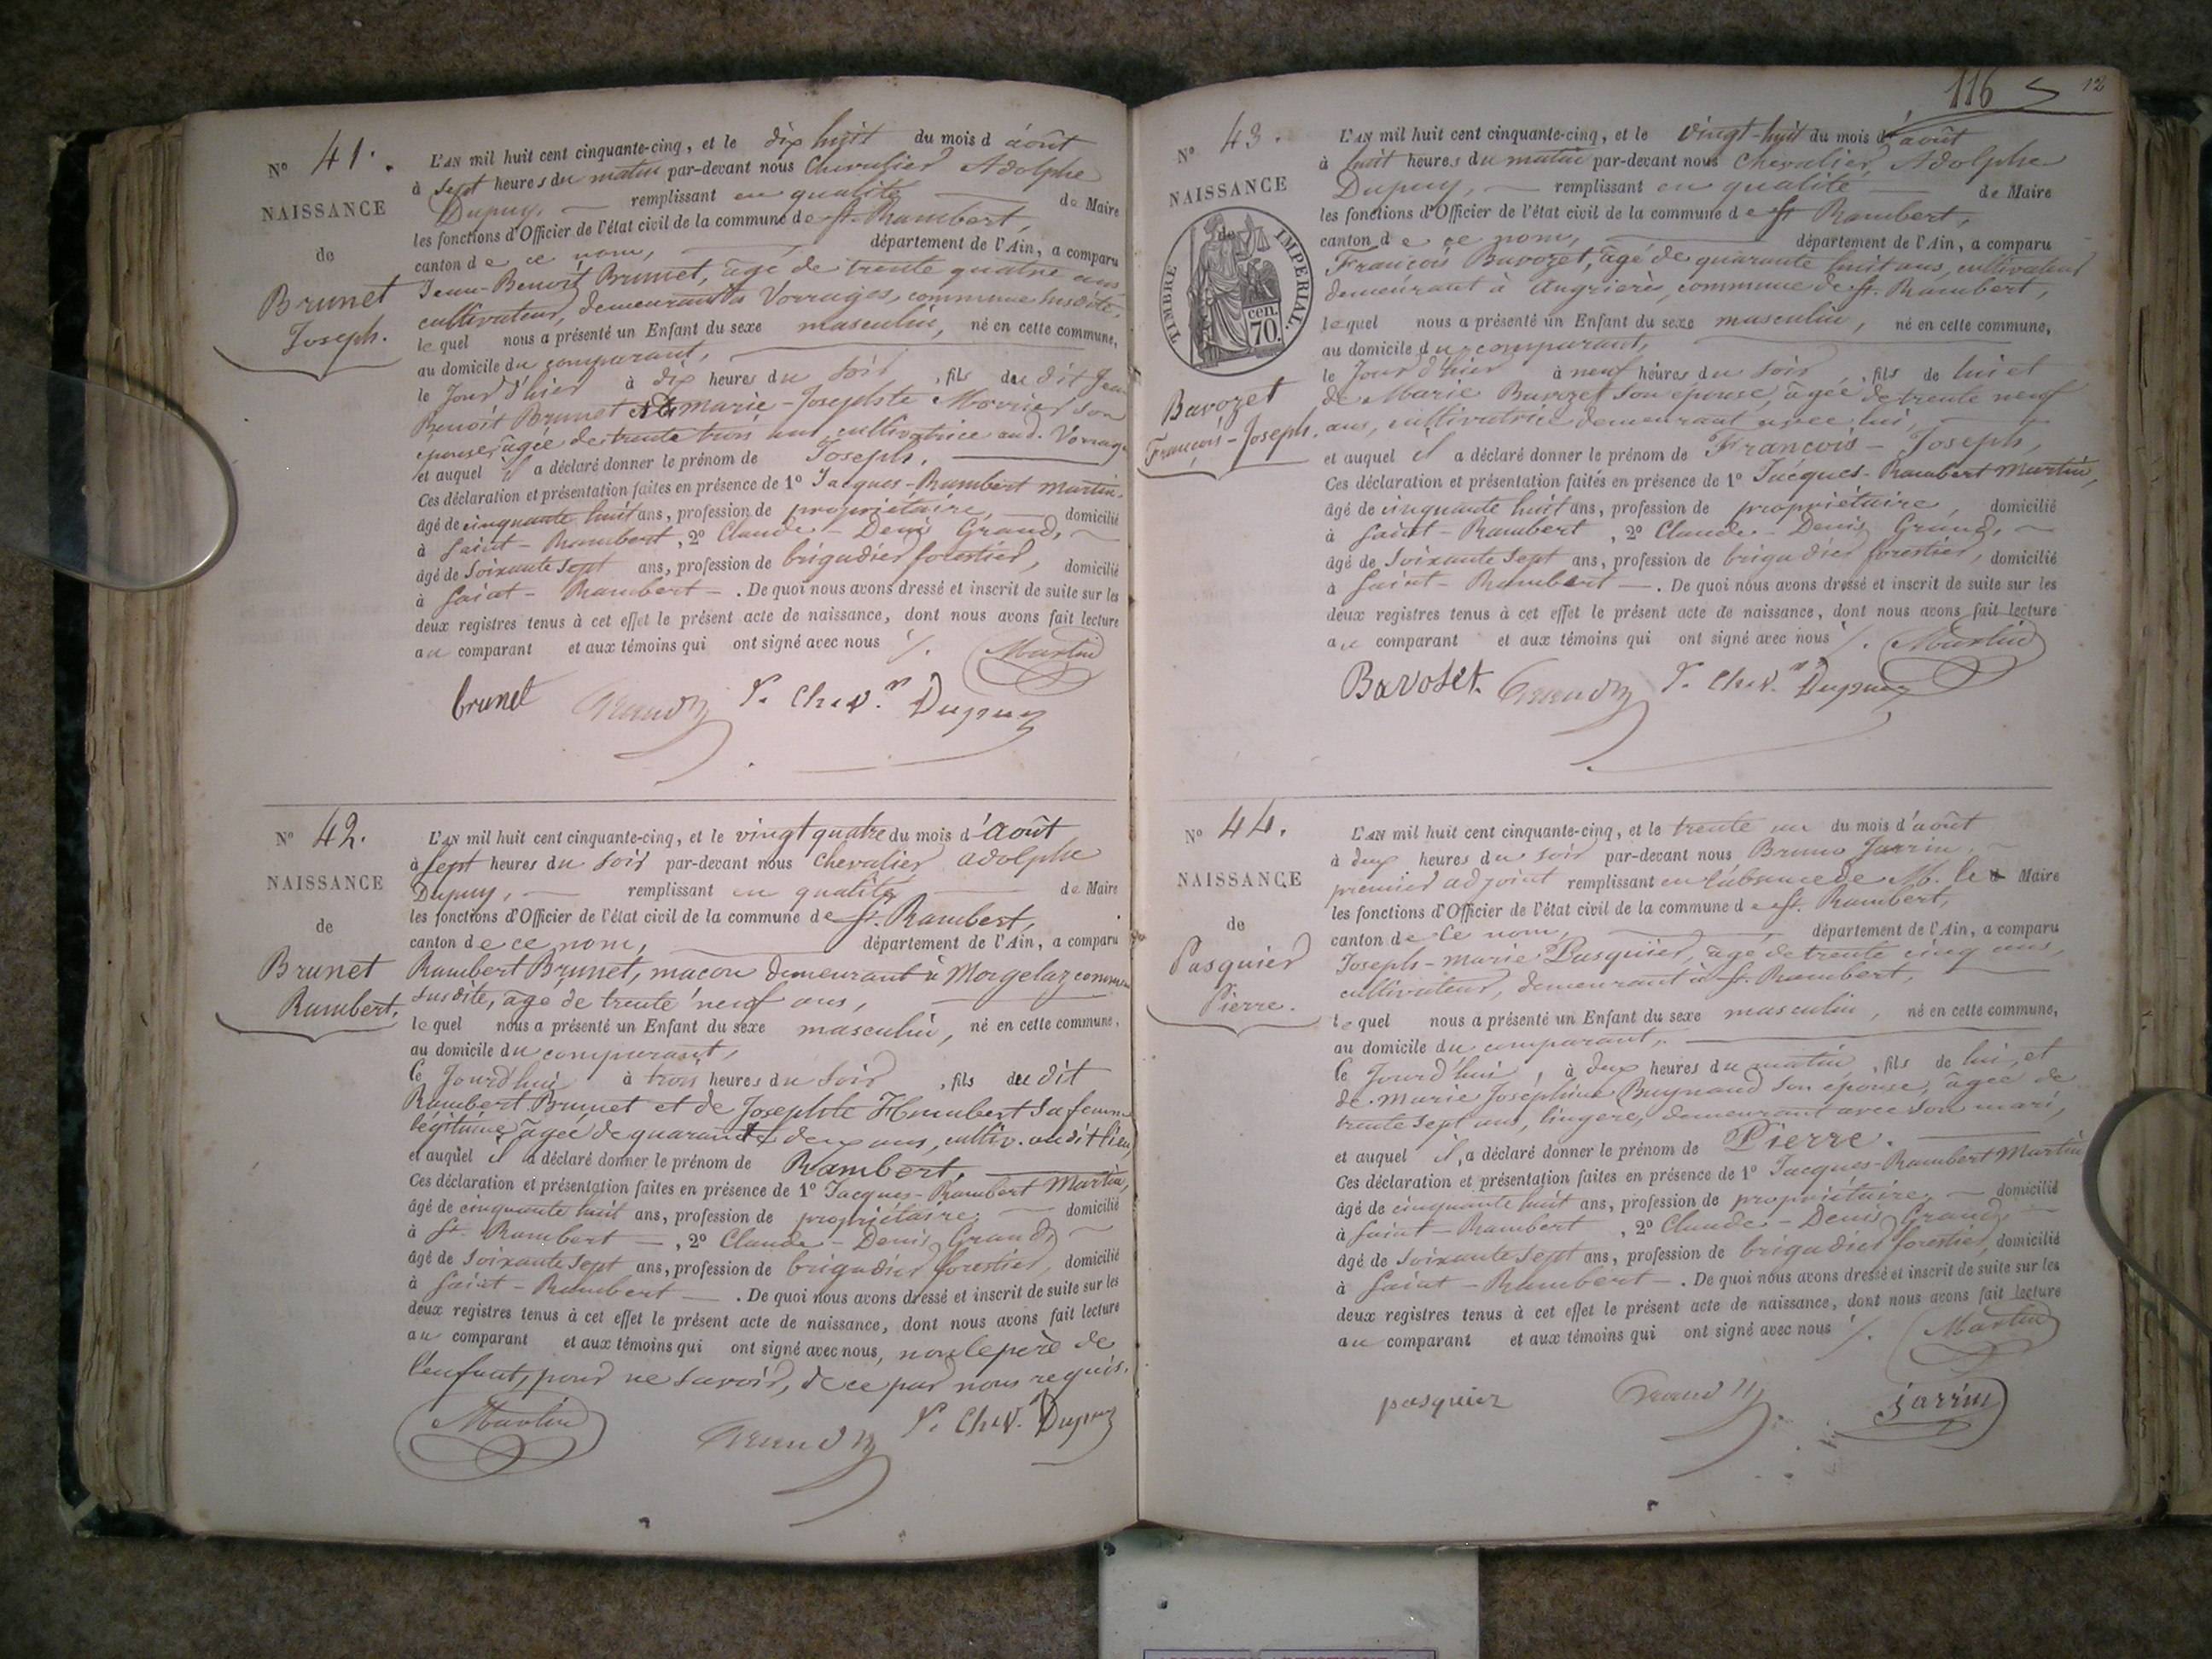 N° 41.
NAISSANCE
de
Brunet
Joseph.
L'AN mil huit cent cinquante-cinq, et le dix huit du mois d'août
à sept heures du matin par-devant nous Chevalier Adolphe
Dupuy, remplissant en qualité de Maire
les fonctions d'Officier de l'état civil de la commune de St. Rambert,
canton de ce nom, département de l'Ain, a comparu
Jean-Benoit Brunet, âgé de trente quatre ans
cultivateur, demeurant à Vorages, commune susdite,
lequel nous a présenté un Enfant du sexe masculin, né en cette commune,
au domicile du comparant,
le jour d'hier à dix heures du soir, fils du dit Jean
Benoit Brunet et de marie-Josephte son
épouse, âgée de trente trois ans cultivatrice aud.
et auquel il a déclaré donner le prénom de Joseph.
Ces déclaration et présentation faites en présence de 1° Jacques-Rambert Martin,
âgé de cinquante huit ans, profession de propriétaire, domicilié
à Saint-Rambert, 2° Claude-Denis Grand,
âgé de soixante sept ans, profession de brigadier forestier, domicilié
à Saint-Rambert. De quoi nous avons dressé et inscrit de suite sur les
deux registres tenus à cet effet le présent acte de naissance, dont nous avons fait lecture
au comparant et aux témoins qui ont signé avec nous ./.
Martin
brunet Grand Dupuy
N° 42.
NAISSANCE
de
Brunet
Rambert.
L'AN mil huit cent cinquante-cinq, et le vingt quatre du mois d'Août
à sept heures du soir par-devant nous Chevalier Adolphe
Dupuy, remplissant en qualité de Maire
les fonctions d'Officier de l'état civil de la commune de St. Rambert,
canton de ce nom, département de l'Ain, a comparu
Rambert Brunet, maçon demeurant à Morgelaz commune
susdite, âgé de trente neuf ans,
lequel nous a présenté un Enfant du sexe masculin, né en cette commune,
au domicile du comparant,
ce jourd'hui à trois heures du soir, fils du dit
Rambert Brunet et de Josephte Humbert sa femme
légitime, âgée de quarante deux ans, cultiv. audit lieu,
et auquel il a déclaré donner le prénom de Rambert.
Ces déclaration et présentation faites en présence de 1° Jacques-Rambert Martin,
âgé de cinquante huit ans, profession de propriétaire, domicilié
à St. Rambert, 2° Claude-Denis Grand
âgé de soixante sept ans, profession de brigadier forestier, domicilié
à Saint-Rambert. De quoi nous avons dressé et inscrit de suite sur les
deux registres tenus à cet effet le présent acte de naissance, dont nous avons fait lecture
au comparant et aux témoins qui ont signé avec nous, non le père de
l'enfant, pour ne savoir, de ce par nous requis.
Martin Grand Dupuy
116 12
N° 43.
NAISSANCE
de
TIMBRE IMPERIAL.
70 cen.
Bavozet
François-Joseph.
L'AN mil huit cent cinquante-cinq, et le vingt-huit du mois d'août
à huit heures du matin par-devant nous Chevalier Adolphe
Dupuy, remplissant en qualité de Maire
les fonctions d'Officier de l'état civil de la commune de St Rambert,
canton de ce nom, département de l'Ain, a comparu
François Bavozet, âgé de quarante huit ans, cultivateur
demeurant à Angrières, commune de St. Rambert,
lequel nous a présenté un Enfant du sexe masculin, né en cette commune,
au domicile du comparant,
le jour d'hier à neuf heures du soir, fils de lui et
de Marie Bavozet son épouse, âgée de trente neuf
ans, cultivatrice demeurant avec lui,
et auquel il a déclaré donner le prénom de François-Joseph,
Ces déclaration et présentation faites en présence de 1° Jacques-Rambert Martin,
âgé de cinquante huit ans, profession de propriétaire, domicilié
à Saint-Rambert, 2° Claude-Denis Grand,
âgé de soixante sept ans, profession de brigadier forestier, domicilié
à Saint-Rambert. De quoi nous avons dressé et inscrit de suite sur les
deux registres tenus à cet effet le présent acte de naissance, dont nous avons fait lecture
au comparant et aux témoins qui ont signé avec nous ./. Martin
Bavoset. Grand Dupuy
N° 44.
NAISSANCE
de
Pasquier
Pierre.
L'AN mil huit cent cinquante-cinq, et le trente un du mois d'août
à deux heures du soir par-devant nous Bruno Jarrin,
premier adjoint remplissant en l'absence de M. le Maire
les fonctions d'Officier de l'état civil de la commune de St. Rambert,
canton de ce nom, département de l'Ain, a comparu
Joseph-marie Pasquier, âgé de trente cinq ans,
cultivateur, demeurant à St. Rambert,
lequel nous a présenté un Enfant du sexe masculin, né en cette commune,
au domicile du comparant,
ce jourd'hui, à deux heures du matin, fils de lui, et
de Marie Joséphine Buynand son épouse, âgée de
trente sept ans, lingère, demeurant avec son mari,
et auquel il, a déclaré donner le prénom de Pierre.
Ces déclaration et présentation faites en présence de 1° Jacques-Rambert Martin
âgé de cinquante huit ans, profession de propriétaire, domicilié
à Saint-Rambert, 2° Claude-Denis Grand,
âgé de soixante sept ans, profession de brigadier forestier, domicilié
à Saint-Rambert. De quoi nous avons dressé et inscrit de suite sur les
deux registres tenus à cet effet le présent acte de naissance, dont nous avons fait lecture
au comparant et aux témoins qui ont signé avec nous ./. Martin
pasquier Grand jarrin